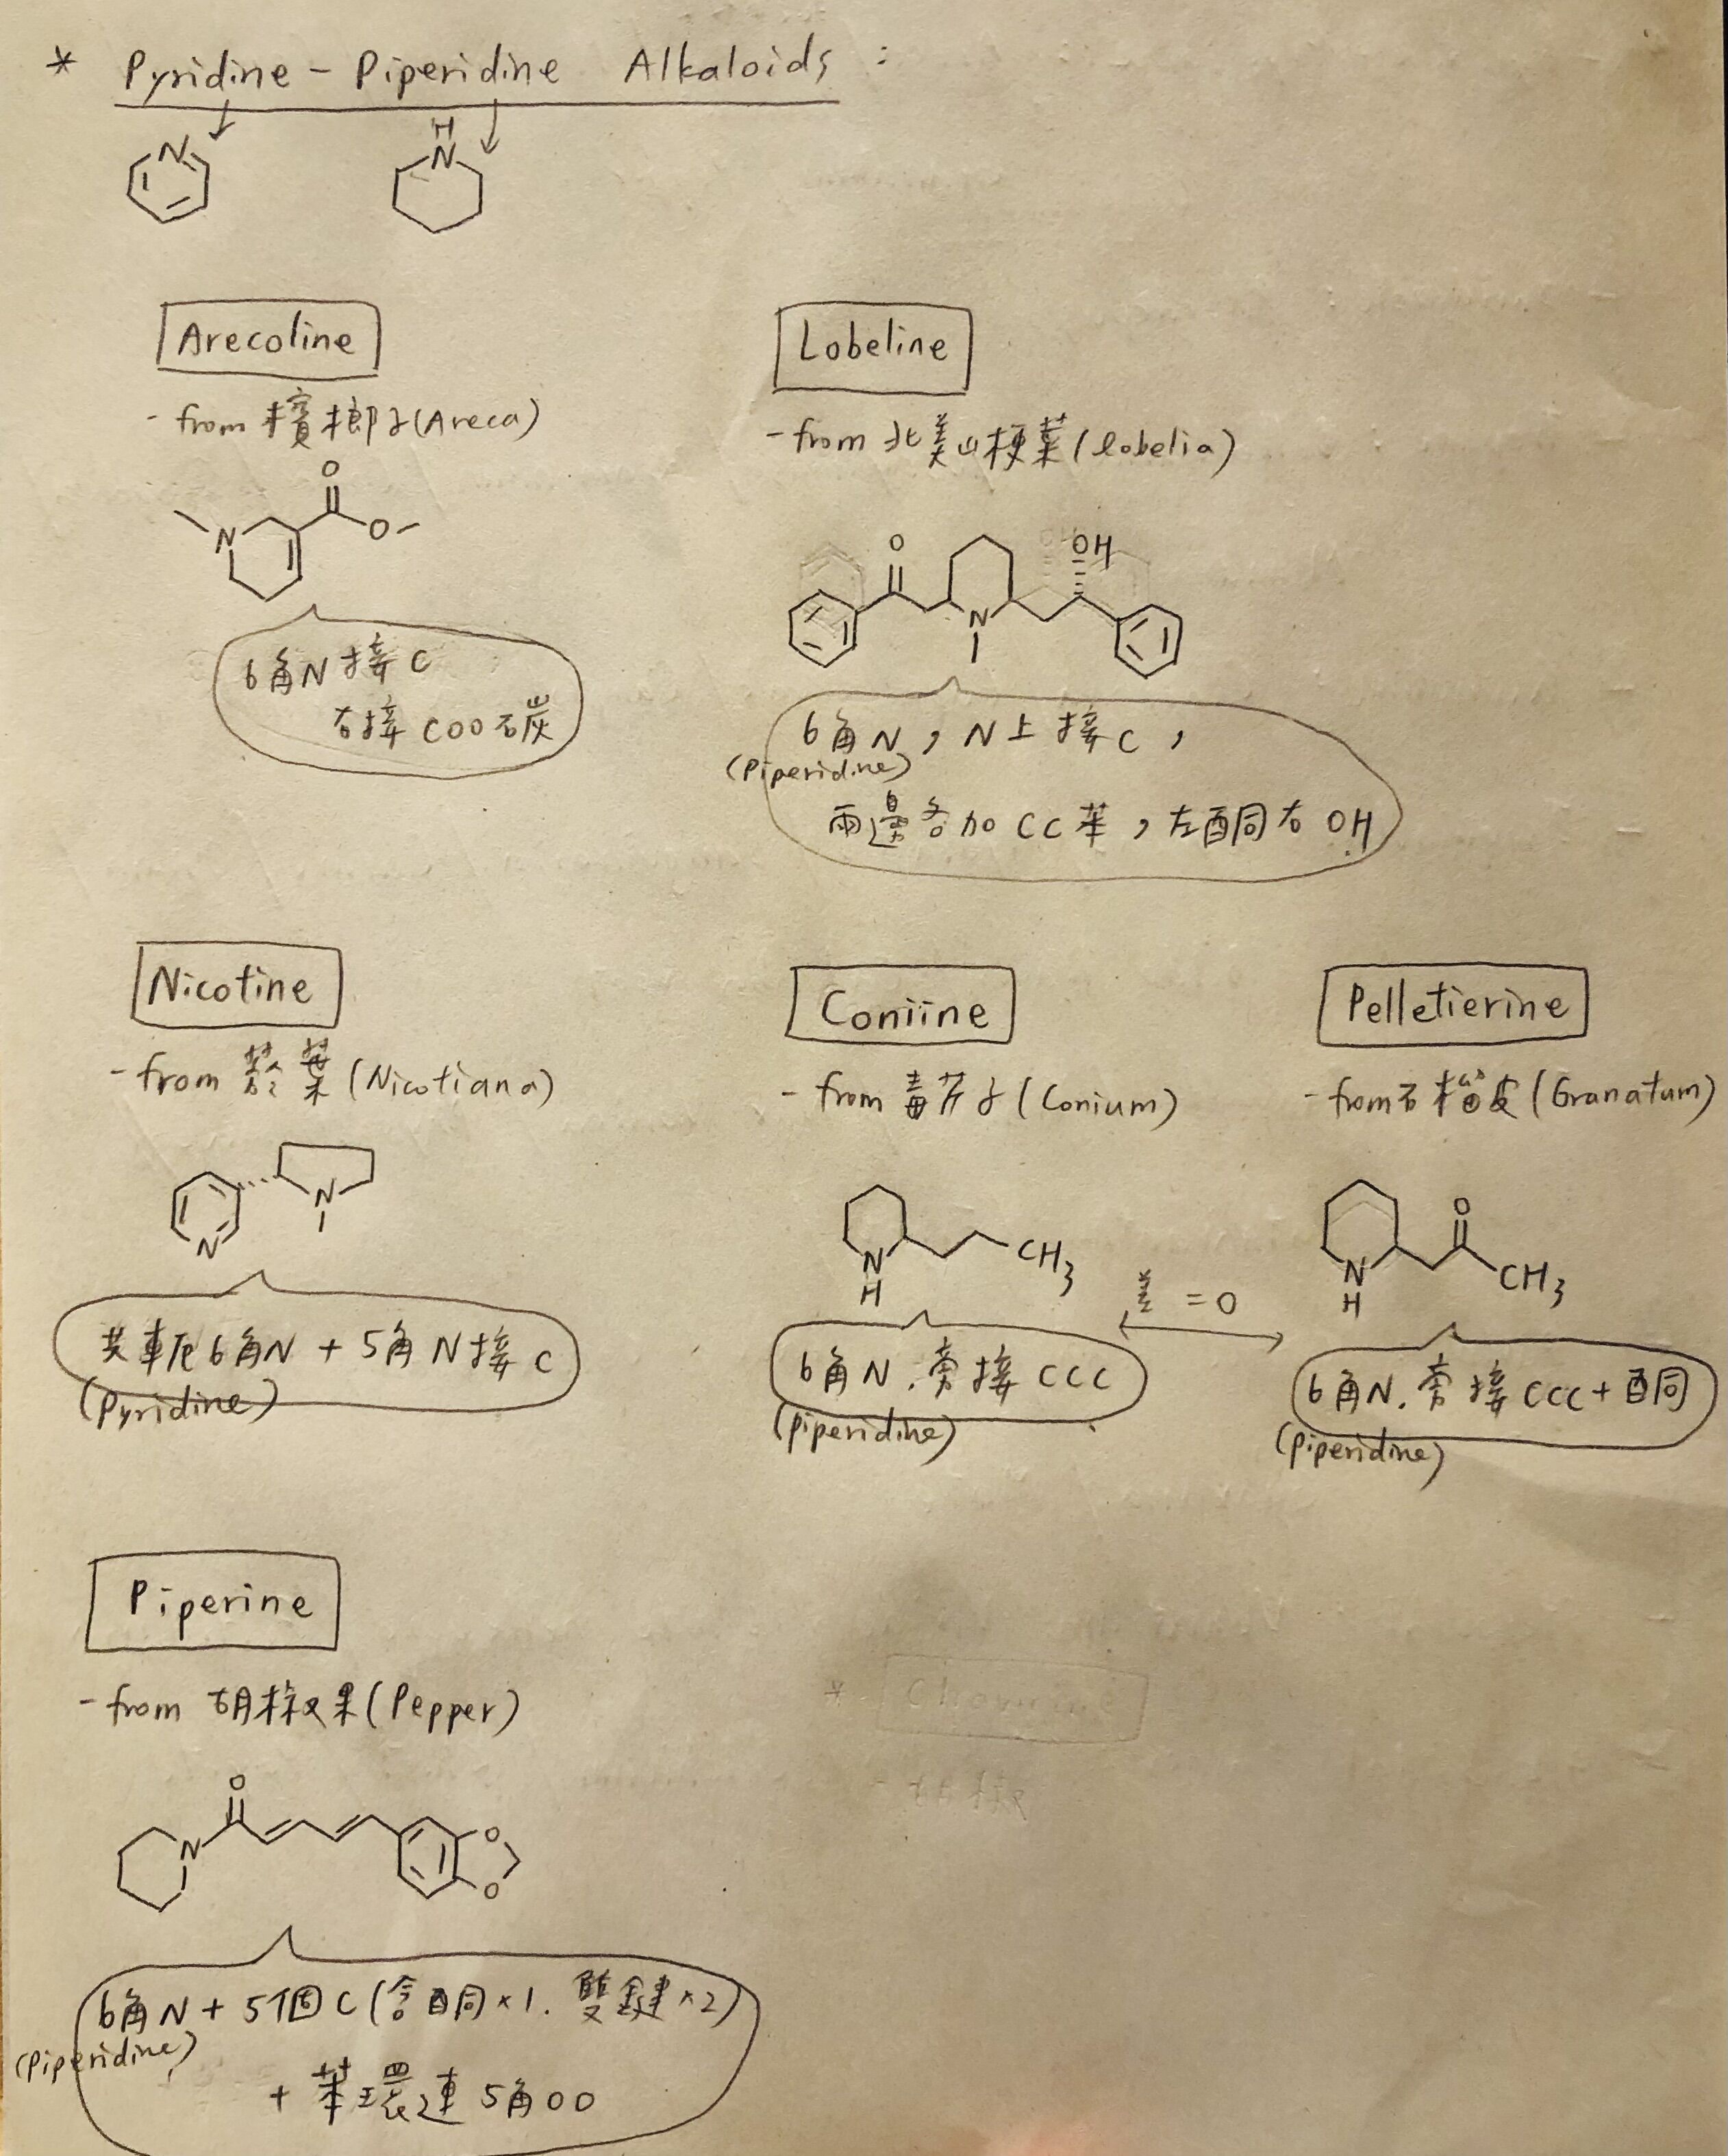 * Pyridine - Piperidine Alkaloids :
N
H
N
Arecoline
- from 檳榔子(Areca)
O
N
O
6角N接C
右接COO碳
Lobeline
- from 北美山梗菜(lobelia)
O
OH
N
6角N,N上接C,
(Piperidine)
兩邊各加CC苯,左酮右OH
Nicotine
- from 菸葉(Nicotiana)
N
N
共軛6角N + 5角N接C
(Pyridine)
Coniine
- from 毒芹子(Conium)
N
H
CH3
6角N.旁接CCC
(piperidine)
差 =O
Pelletierine
- from石榴皮(Granatum)
O
N
H
CH3
6角N.旁接CCC+酮
(piperidine)
Piperine
- from 胡椒果(Pepper)
O
N
O
O
6角N + 5個C(含酮×1.雙鍵×2)
(piperidine)
+ 苯環連5角OO